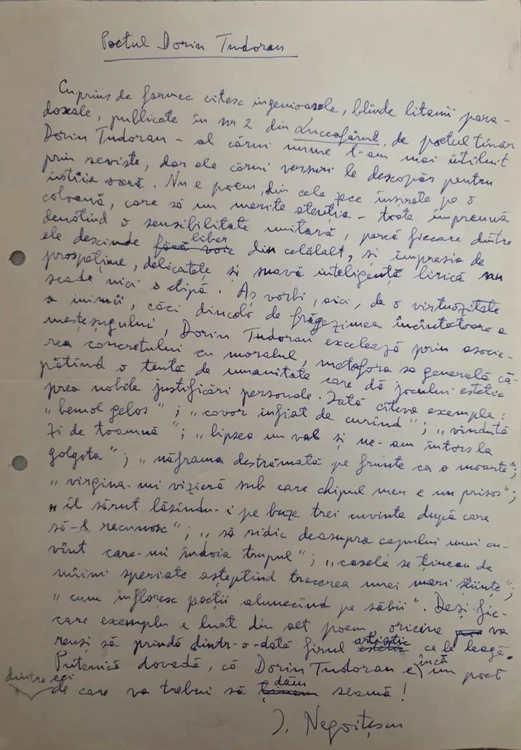 Poetul Dorin Tudoran
Cuprins de farmec citesc ingenioasele, blînde litanii para-
doxale, publicate în nr 2 din Luceafărul, de poetul tînăr
Dorin Tudoran – al cărui nume l-am mai întîlnit
prin reviste, dar ale cărui versuri le descopăr pentru
întîia oară. Nu e poem, din cele zece înșirate pe o
coloană, care să nu merite atenția – toate împreună
denotînd o sensibilitate unitară, parcă fiecare dintre
ele descinde liber din celălalt, și impresia de
prospețime, delicatețe și suavă inteligență lirică nu
scade nici o clipă. Aș vorbi, aici, de o virtuozitate
a inimii, căci dincolo de frăgezimea încîntătoare a
meșteșugului, Dorin Tudoran excelează prin asocie-
rea concretului cu moralul, metafora sa generală că-
pătînd o tentă de umanitate care dă jocului estetic
prea nobile justificări personale. Iată cîteva exemple:
"bemol gelos"; "covor înfiat de curînd"; "vîndută
zi de toamnă"; "lipsea un val și ne-am întors la
golgota"; "năframa destrămată pe frunte ca o moarte";
"virgina-mi vizieră sub care chipul meu e un prisos";
"îl sărut lăsîndu-i pe buze trei cuvinte după care
să-l recunosc"; "să ridic deasupra capului unui cu-
vînt care-mi îndoia trupul"; "casele se țineau de
mîini speriate așteptînd trecerea unei mari științe";
"cum înfloresc poeții alunecînd pe săbii". Deși fie-
care exemplu e luat din alt poem, oricine va
reuși să prindă dintr-o-dată firul artistic ce le leagă.
Puternică dovadă, că Dorin Tudoran e încă un poet
dintre cei de care va trebui să dăm seamă!
I. Negoițescu